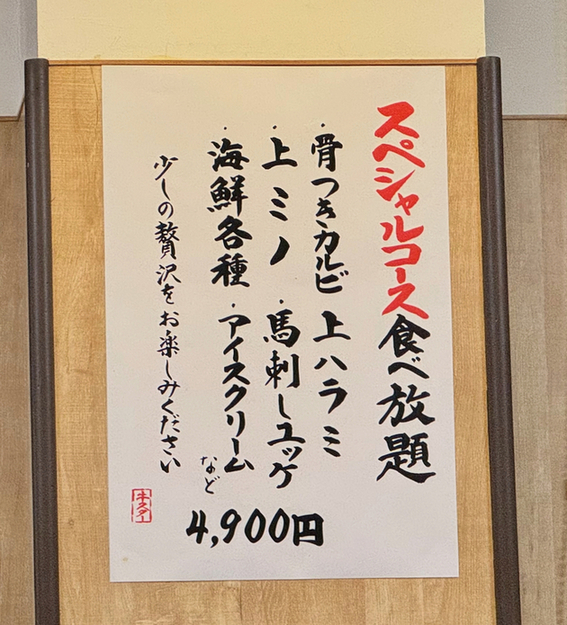 スペシャルコース食べ放題
・骨つきカルビ 上ハラミ
・上ミノ ・馬刺しユッケ
・海鮮各種 ・アイスクリーム など
少しの贅沢をお楽しみください
4,900円
牛スター